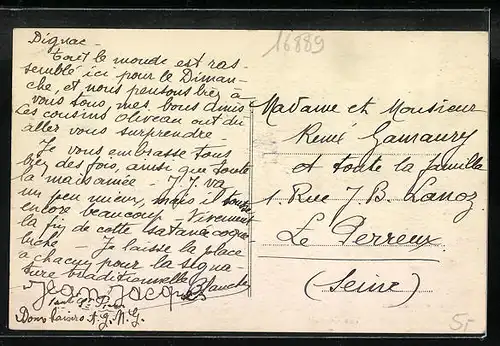 16889
Dignac -
tout le monde est ras-
semblé ici pour le Diman-
che, et nous pensons bien à
vous tous, mes bons amis
Les cousins Oliveau ont dû
aller vous surprendre
Je vous embrasse tous
bien des fois, ainsi que toute
la maisonnée - J.J. va
un peu mieux, mais il tousse
encore beaucoup - Vivement
la fin de cette satanée coque-
luche - Je laisse la place
à chacun pour la signa-
ture traditionnelle Blanche
Jean Jacques
A.G. M.G.
Madame et Monsieur
René Gamaury
et toute la famille
1 Rue J B. Lanoz
Le Perreux
(Seine)
5-